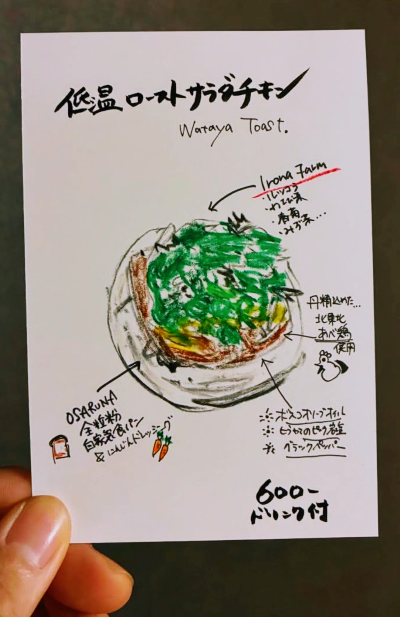 低温ローストサラダチキン
Wataya Toast.
Irona Farm
・ルッコラ
・わさび菜
・春菊
・みず菜...
丹精込めた...
北東北
あべ鶏
使用
OSARUNA
全粒粉
自家製食パン
&にんじんドレッシング
ボスコオリーブオイル
ヒマラヤのピンク岩塩
ブラックペッパー
600-
ドリンク付